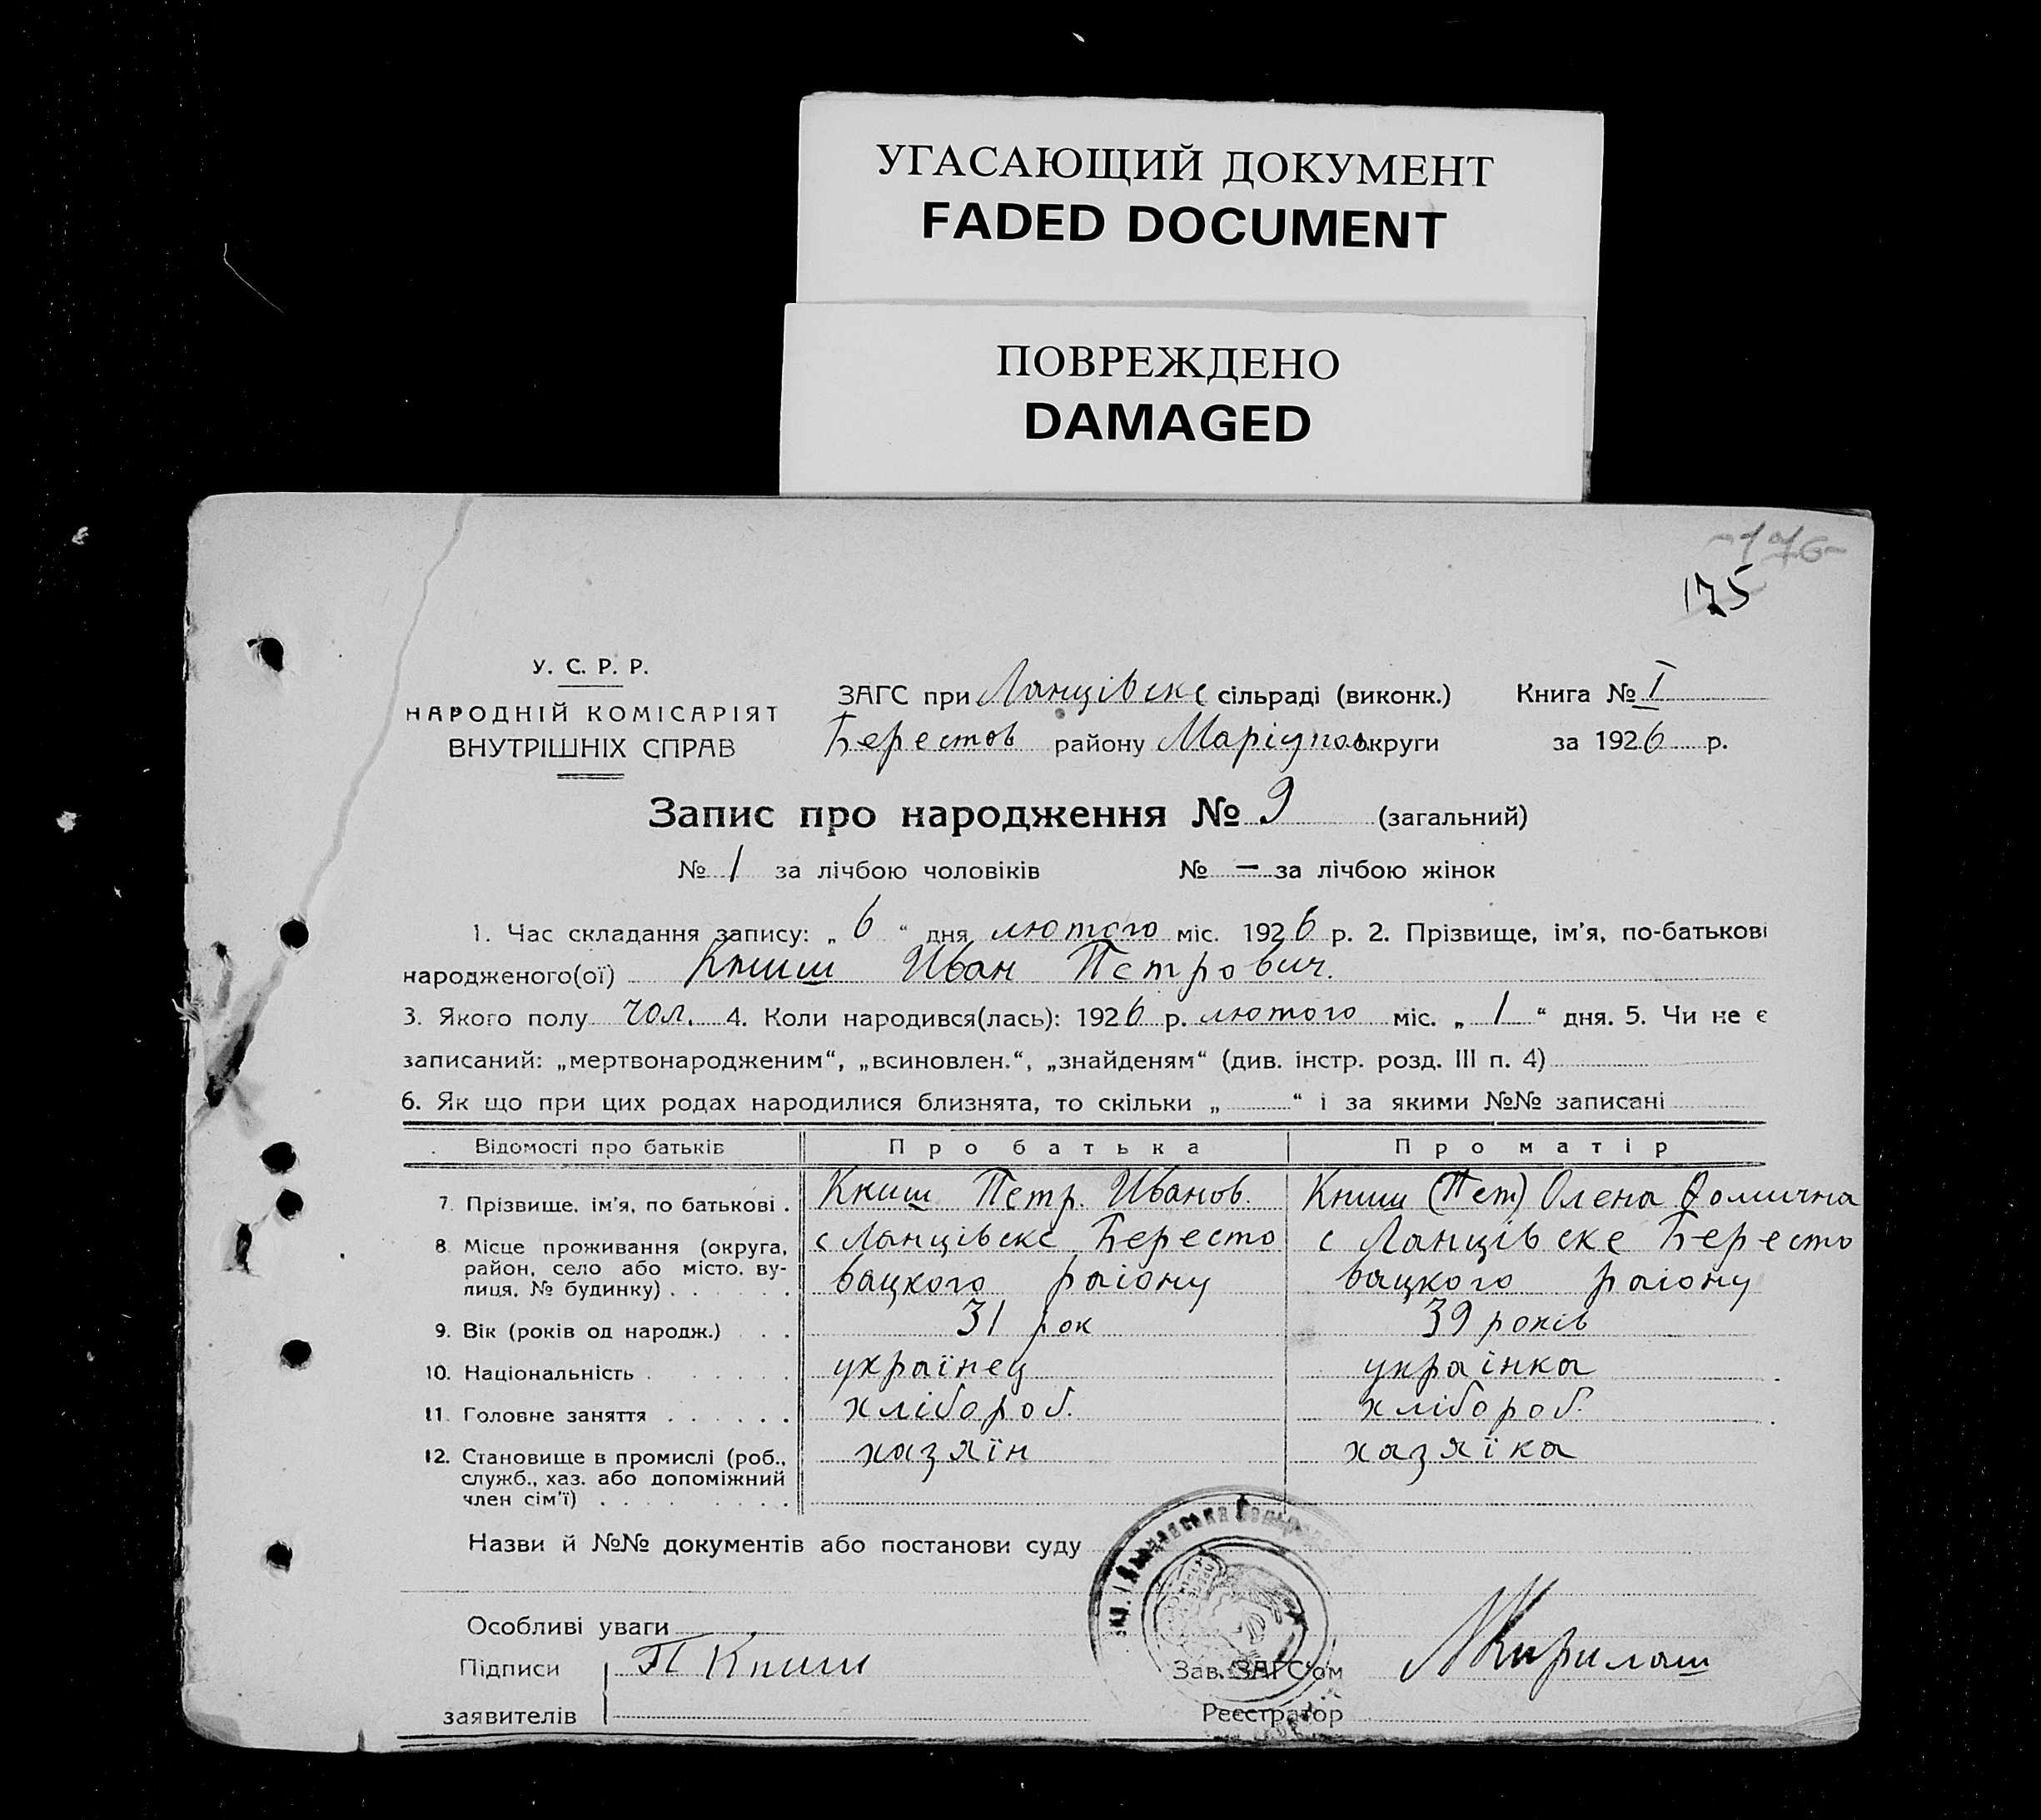 УГАСАЮЩИЙ ДОКУМЕНТ
FADED DOCUMENT
ПОВРЕЖДЕНО
DAMAGED
-176-
175
У. С. Р. Р.
НАРОДНІЙ КОМІСАРІЯТ
ВНУТРІШНІХ СПРАВ
ЗАГС при Ланцівске сільраді (виконк.) Книга № I
Берестов району Маріупол округи за 1926 р.
Запис про народження № 9 (загальний)
№ 1 за лічбою чоловіків № — за лічбою жінок
1. Час складання запису: „ 6 “ дня лютого міс. 1926 р. 2. Прізвище, ім’я, по-батькові
народженого(ої) Книш Иван Петрович.
3. Якого полу чол. 4. Коли народився(лась): 1926 р. лютого міс. „ 1 “ дня. 5. Чи не є
записаний: „мертвонародженим“, „всиновлен.“, „знайденям“ (див. інстр. розд. III п. 4)
6. Як що при цих родах народилися близнята, то скільки „ “ і за якими №№ записані
Відомості про батьків Про батька Про матір
7. Прізвище, ім’я, по батькові . Книш Петр. Иванов. Книш (Пет) Олена Фомична
8. Місце проживання (округа, с Ланцівске Бересто с Ланцівске Бересто
район, село або місто, ву-
лиця, № будинку) . . . вацкого раіону вацкого раіону
9. Вік (років од народж.) . . 31 рок 39 років
10. Національність . . . . . українец украінка
11. Головне заняття . . . . . хлібороб. хлібороб.
12. Становище в промислі (роб., хазяїн хазяїка
служб., хаз. або допоміжний
член сім’ї) . . . . . . .
Назви й №№ документів або постанови суду
Особливі уваги
Підписи П Книш Зав. ЗАГС’ом Кирилаш
заявителів Реєстратор